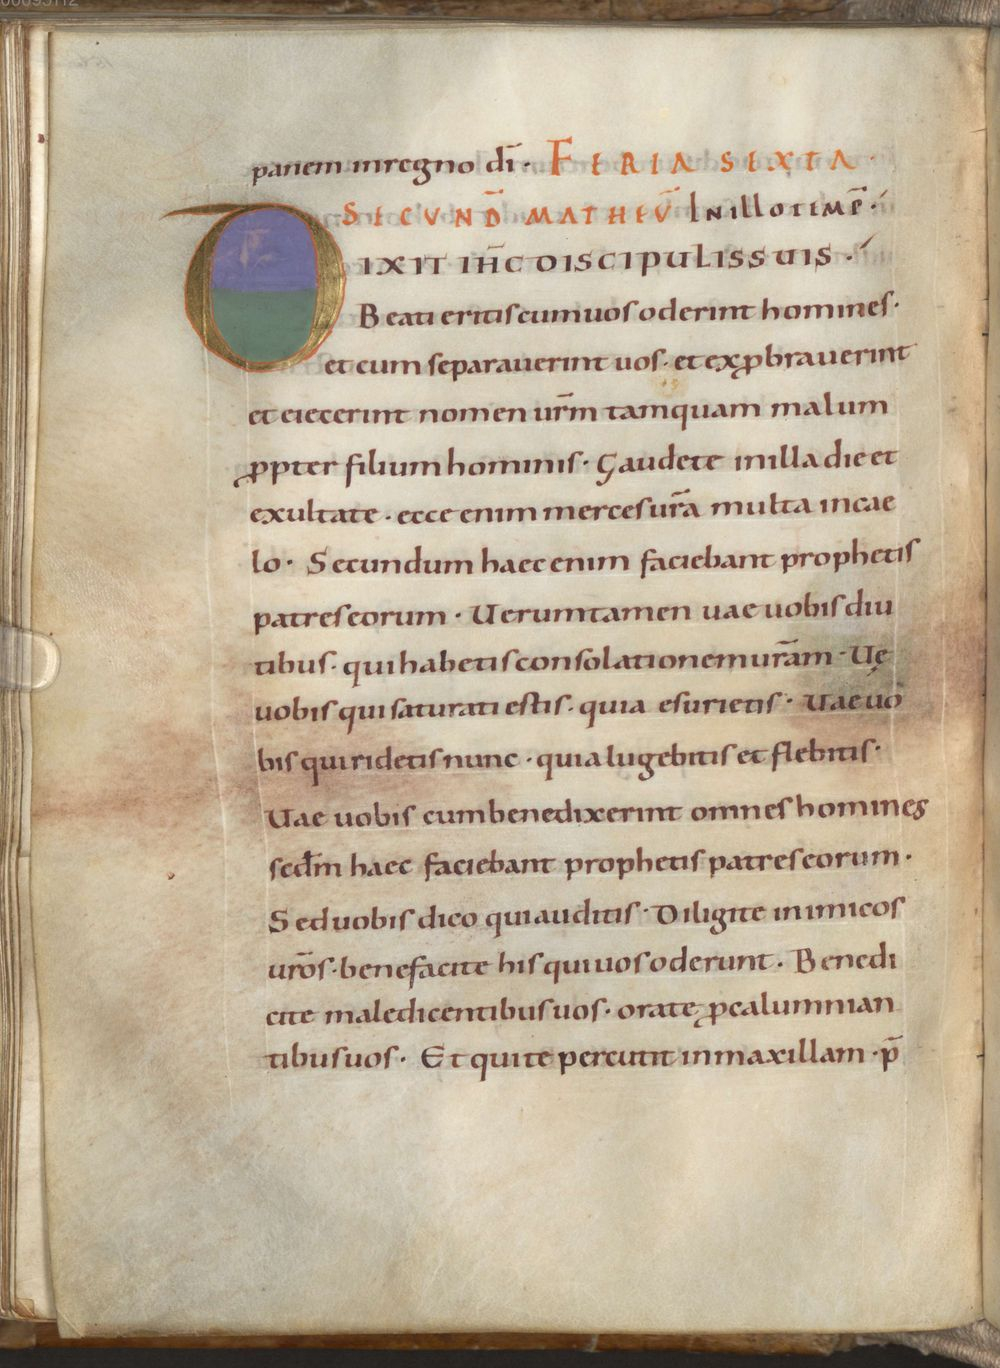 panem in regno dī · FERIA SEXTA ·
SECVND̄ MATHEV̄ In illo timp̄ ·
DIXIT IH̄C DISCIPULIS SUIS ·
Beati eritis cum uos oderint homines ·
et cum separauerint uos · et exꝓbrauerint
et eiecerint nomen ur̄m tamquam malum
ꝓpter filium hominis · Gaudete in illa die et
exultate · ecce enim merces ur̄a multa in cae
lo · Secundum haec enim faciebant prophetis
patres eorum · Uerumtamen uae uobis diui
tibus · qui habetis consolationem ur̄am · Uę
uobis qui saturati estis · quia esurietis · Uae uo
bis qui ridetis nunc · quia lugebitis et flebitis ·
Uae uobis cum benedixerint omnes homines
secđm haec faciebant prophetis patres eorum ·
Sed uobis dico qui auditis · Diligite inimicos
ur̄os · benefacite his qui uos oderunt · Benedi
cite maledicentibus uos · orate ꝓ calumnian
tibus uos · Et qui te percutit in maxillam · p̄